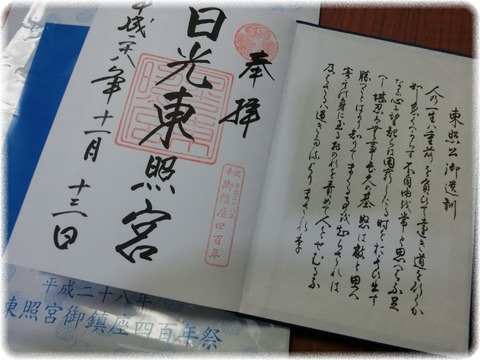 東照公御遺訓
人の一生は重荷を負て遠き道をゆくか
如し急くへからす不自由を常と思へは不足
なし心に望起らは困窮したる時をおもひ出す
へし堪忍は無事長久の基怒は敵と思へ
勝つことはかり知りてまくる事を知らされは
害其身に至るおのれを責めて人をせむるな
及はさるは過きたるよりまされり
奉拝
御鎮座四百年
日光東照宮
平成二八年十二月十三日
平成二十八年
東照宮御鎮座四百年祭